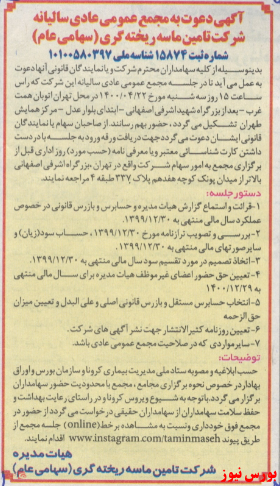 آگهی دعوت به مجمع عمومی عادی سالیانه
شرکت تامین ماسه ریخته گری (سهامی عام)
شماره ثبت ۱۵۸۷۴ شناسه ملی ۱۰۱۰۰۵۸۰۳۹۷
بدینوسیله از کلیه سهامداران محترم شرکت و یا نمایندگان قانونی آنها دعوت
به عمل می آید تا در جلسه مجمع عمومی عادی سالیانه این شرکت که راس
ساعت ۱۵ روز سه شنبه مورخ ۱۴۰۰/۰۴/۲۲ در محل تهران اتوبان همت
غرب - بعد از بزرگراه شهید اشرفی اصفهانی - ابتدای بلوار عدل - مرکز همایش
طهران تشکیل می گردد، حضور بهم رسانند. از صاحبان سهام یا نمایندگان
قانونی ایشان دعوت می گردد جهت دریافت ورقه ورود به جلسه با در دست
داشتن کارت شناسائی معتبر و یا معرفی نامه (حسب مورد) روز اداری قبل از
برگزاری مجمع به امور سهام شرکت واقع در تهران، بزرگراه اشرفی اصفهانی
بالاتر از میدان پونک کوچه هفدهم پلاک ۳۳۷ طبقه ۴ مراجعه نمایند.
دستور جلسه:
۱- قرائت و استماع گزارش هیات مدیره و حسابرس و بازرس قانونی در خصوص
عملکرد سال مالی منتهی به ۱۳۹۹/۱۲/۳۰.
۲- بررسی و تصویب ترازنامه مورخ ۱۳۹۹/۱۲/۳۰، حساب سود (زیان) و
سایر صورتهای مالی منتهی به ۱۳۹۹/۱۲/۳۰.
۳- اتخاذ تصمیم در مورد تقسیم سود سال مالی منتهی به ۱۳۹۹/۱۲/۳۰.
۴- تعیین حق حضور اعضای غیر موظف هیات مدیره برای سال مالی منتهی
به ۱۴۰۰/۱۲/۲۹
۵- انتخاب حسابرس مستقل و بازرس قانونی اصلی و علی البدل و تعیین میزان
حق الزحمه
۶- تعیین روزنامه کثیرالانتشار جهت نشر آگهی های شرکت.
۷- سایر مواردی که در صلاحیت مجمع عمومی عادی باشد.
توضیحات:
حسب ابلاغیه و مصوبه ستاد ملی مدیریت بیماری کرونا و سازمان بورس و اوراق
بهادار در خصوص نحوه برگزاری مجامع، مجمع با محدودیت حضور سهامداران
برگزار می گردد. با توجه به شیوع ویروس کرونا و در راستای رعایت بهداشت و
حفظ سلامت سهامداران از سهامداران حقیقی درخواست می گردد از حضور در
مجمع فوق خودداری و نسبت به مشاهده بر خط (online) جلسه مجمع از
طریق پیوند www.instagram.com/taminmaseh اقدام نمایند.
هیات مدیره
شرکت تامین ماسه ریخته گری (سهامی عام)
بورس نیوز